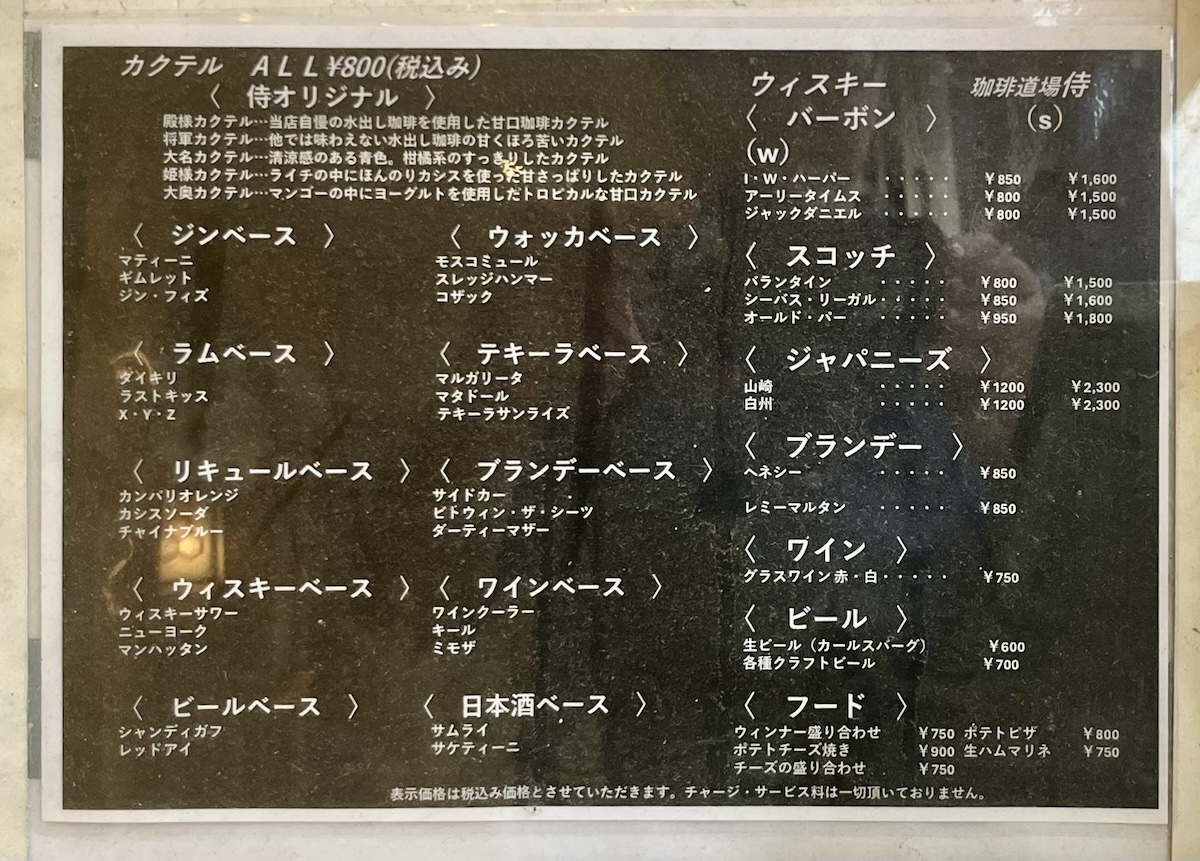 カクテル　ＡＬＬ¥800(税込み)
〈　侍オリジナル　〉
殿様カクテル…当店自慢の水出し珈琲を使用した甘口珈琲カクテル
将軍カクテル…他では味わえない水出し珈琲の甘くほろ苦いカクテル
大名カクテル…清涼感のある青色。柑橘系のすっきりしたカクテル
姫様カクテル…ライチの中にほんのりカシスを使った甘さっぱりしたカクテル
大奥カクテル…マンゴーの中にヨーグルトを使用しだトロピカルな甘口カクテル
〈　ジンベース　〉
マティーニ
ギムレット
ジン・フィズ
〈　ウォッカベース　〉
モスコミュール
スレッジハンマー
コザック
〈　ラムベース　〉
ダイキリ
ラストキッス
X・Y・Z
〈　テキーラベース　〉
マルガリータ
マタドール
テキーラサンライズ
〈　リキュールベース　〉
カンパリオレンジ
カシスソーダ
チャイナブルー
〈　ブランデーベース　〉
サイドカー
ビトウィン・ザ・シーツ
ダーティーマザー
〈　ウィスキーベース　〉
ウィスキーサワー
ニューヨーク
マンハッタン
〈　ワインベース　〉
ワインクーラー
キール
ミモザ
〈　ビールベース　〉
シャンディガフ
レッドアイ
〈　日本酒ベース　〉
サムライ
サケティーニ
ウィスキー　珈琲道場侍
〈　バーボン　〉　（s）
（w）
I・W・ハーパー　・・・・・　￥850　￥1,600
アーリータイムス　・・・・・　￥800　￥1,500
ジャックダニエル　・・・・・　￥800　￥1,500
〈　スコッチ　〉
バランタイン　・・・・・　￥800　￥1,500
シーバス・リーガル・・・・・　￥850　￥1,600
オールド・パー　・・・・・　￥950　￥1,800
〈　ジャパニーズ　〉
山崎　・・・・・　￥1200　￥2,300
白州　・・・・・　￥1200　￥2,300
〈　ブランデー　〉
ヘネシー　・・・・・　￥850
レミーマルタン　・・・・・　￥850
〈　ワイン　〉
グラスワイン 赤・白・・・・・　￥750
〈　ビール　〉
生ビール（カールスバーグ）　￥600
各種クラフトビール　￥700
〈　フード　〉
ウィンナー盛り合わせ　￥750　ポテトピザ　￥800
ポテトチーズ焼き　￥900　生ハムマリネ　￥750
チーズの盛り合わせ　￥750
表示価格は税込み価格とさせていただきます。チャージ・サービス料は一切頂いておりません。